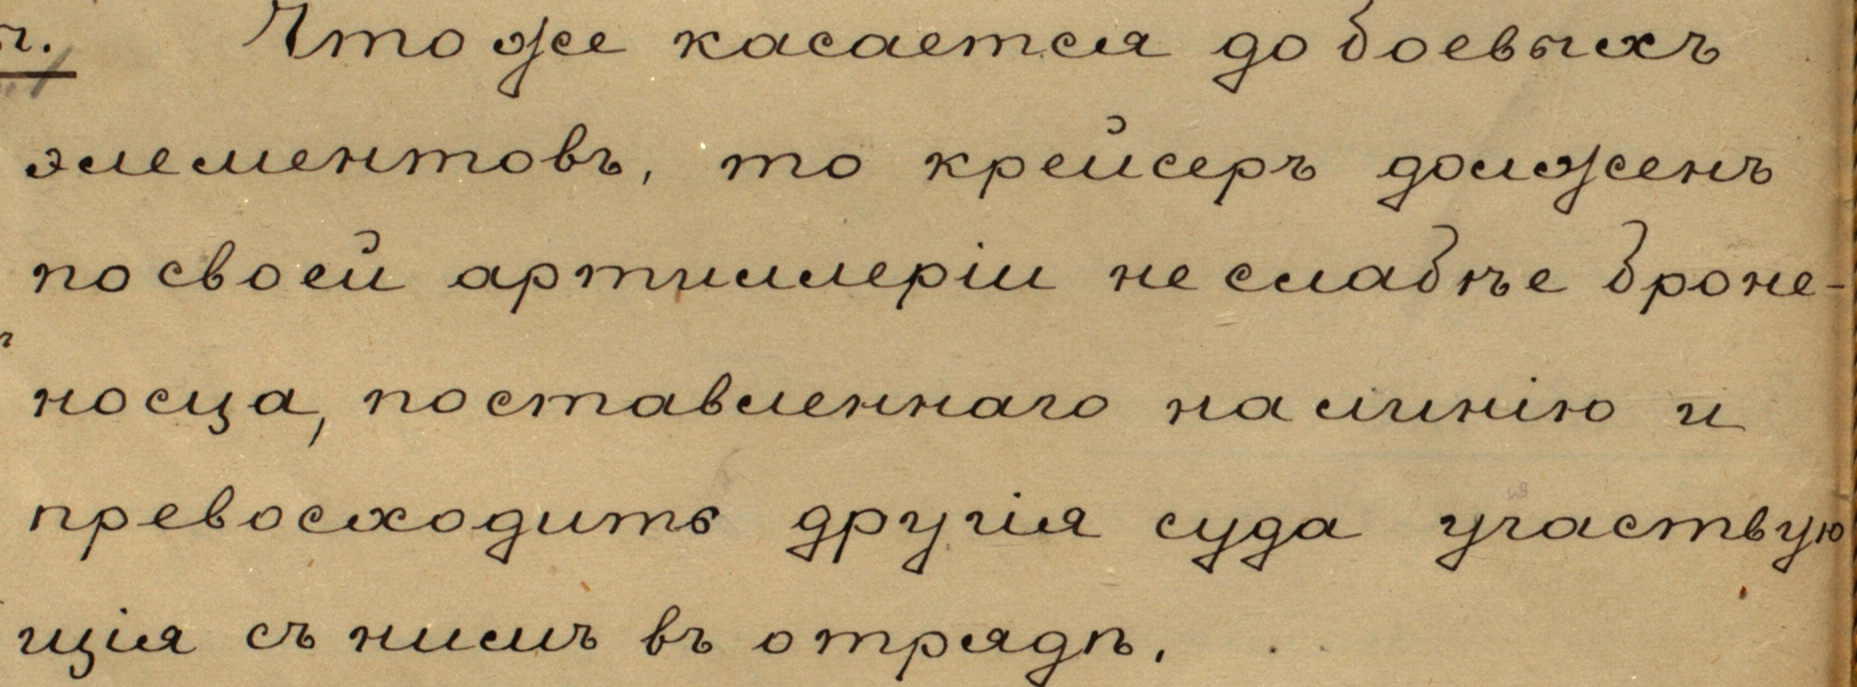 Что же касается до боевыхъ
элементовъ, то крейсеръ долженъ
по своей артиллеріи не слабѣе броне-
носца, поставленнаго на линію и
превосходить другія суда участвую
щія съ нимъ въ отрядѣ.